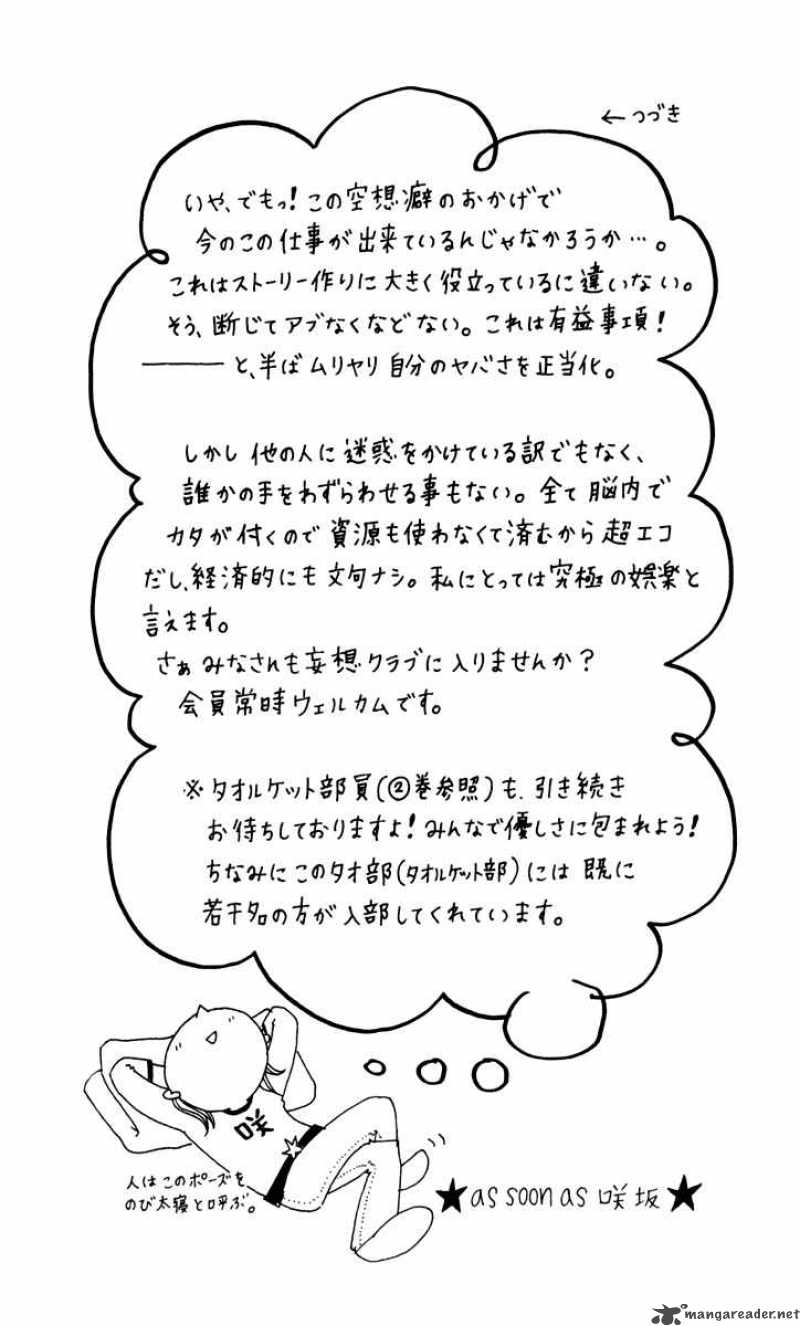 ←つづき
いや、でもっ！この空想癖のおかげで
今のこの仕事が出来ているんじゃなかろうか…。
これはストーリー作りに大きく役立っているに違いない。
そう、断じてアブなくなどない。これは有益事項！
――― と、半ばムリヤリ自分のヤバさを正当化。
しかし他の人に迷惑をかけている訳でもなく、
誰かの手をわずらわせる事もない。全て脳内で
カタが付くので資源も使わなくて済むから超エコ
だし、経済的にも文句ナシ。私にとっては究極の娯楽と
言えます。
さぁみなさんも妄想クラブに入りませんか？
会員常時ウェルカムです。
※タオルケット部員(②巻参照)も、引き続き
お待ちしておりますよ！みんなで優しさに包まれよう！
ちなみにこのタオ部(タオルケット部)には既に
若干名の方が入部してくれています。
咲
人はこのポーズを
のび太寝と呼ぶ。
★as soon as 咲坂★
mangareader.net